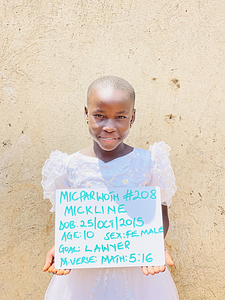 MICPARWOTH #208
MICKLINE
DOB: 25/OCT/2015
AGE: 10 SEX: FEMALE
GOAL: LAWYER
M.VERSE: MATH: 5:16